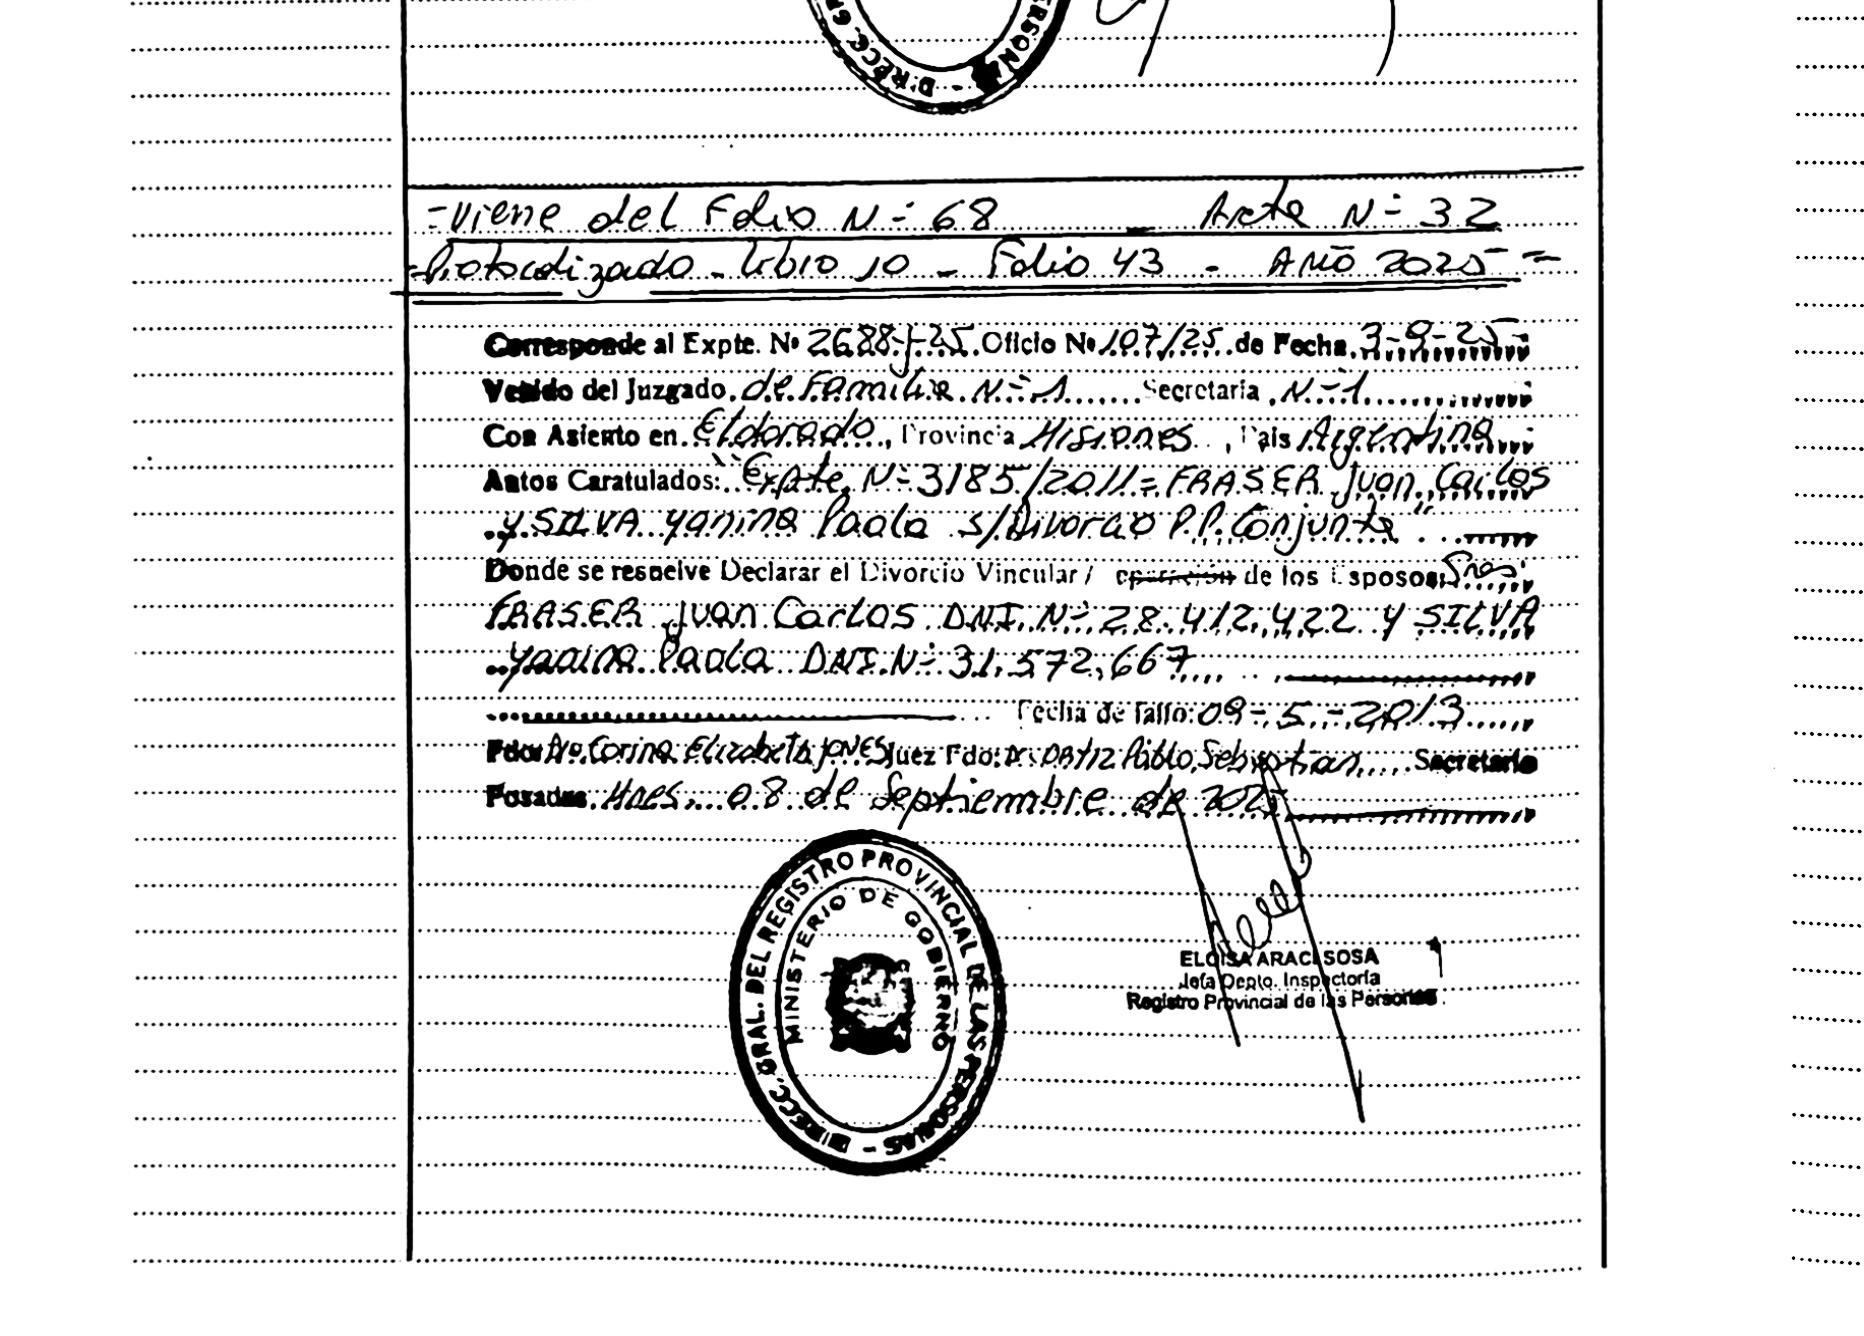 DIRECC. GR
ERSONAS -
- Viene del Folio N-º 68 - Acta N-º 32
= Protocolizado - Libro 10 - Folio 43 - AÑO 2025 =
Corresponde al Expte. Nº 2688-J-25 Oficio Nº 107/25 de Fecha 3-9-25-
Venido del Juzgado de Familia N-º 1 Secretaria N-º 1
Con Asiento en Eldorado, Provincia Misiones, Pais Argentina
Autos Caratulados: "Expte N-º 3185/2011 = FRASER Juan Carlos
y SILVA Yanina Paola s/Divorcio P.P. Conjunta"
Donde se resuelve Declarar el Divorcio Vincular / de los Esposos: Sres
FRASER Juan Carlos DNI. N-º 28.412.422 Y SILVA
Yanina Paola DNI. N-º 31.572.667
Fecha de fallo: 09-5-2013
Fdo: Corina Elizabeth JONES Juez Fdo: Dr. ORTIZ Pablo Sebastian Secretario
Posadas, Mnes. 08 de Septiembre de 2025
DIRECC. GRAL. DEL REGISTRO PROVINCIAL DE LAS PERSONAS -
MINISTERIO DE GOBIERNO
ELOISA ARACI SOSA
Jefa Depto. Inspectoría
Registro Provincial de las Personas